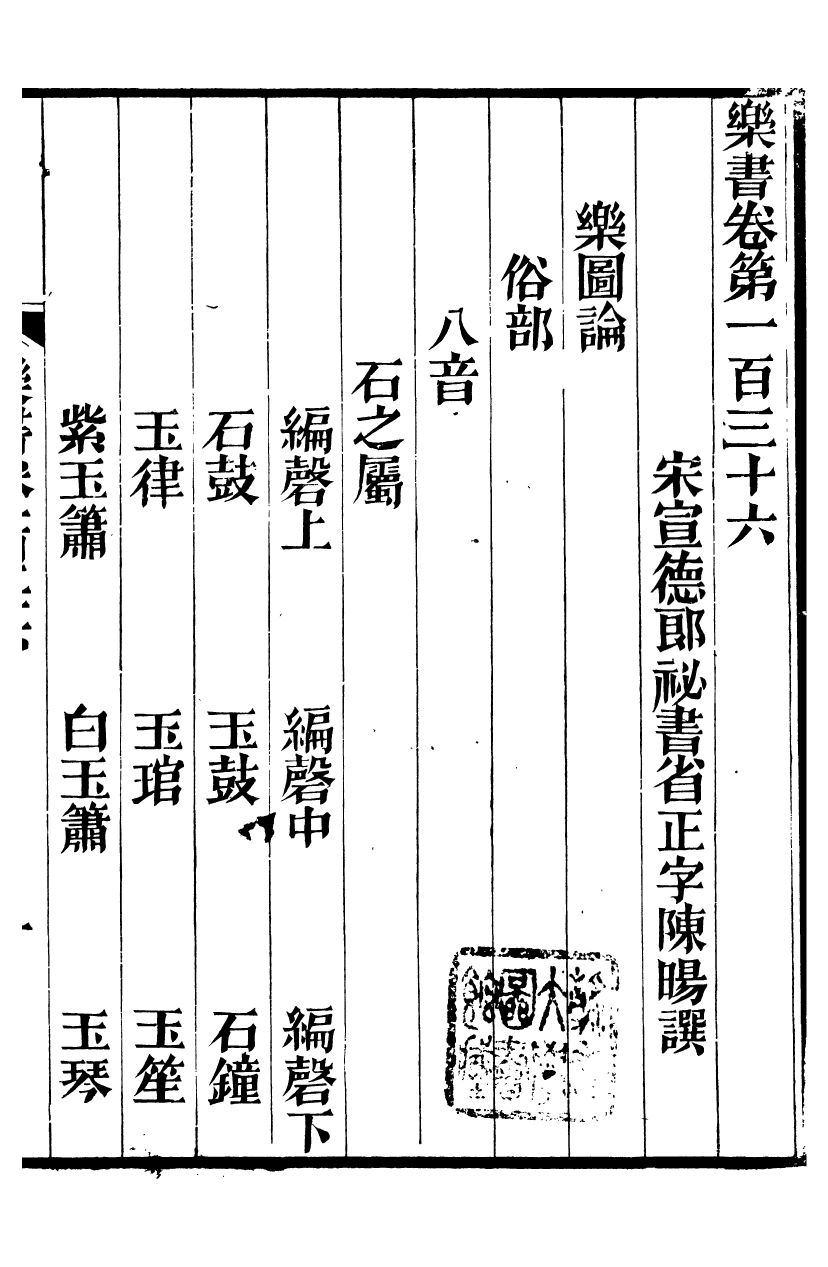 樂書卷第一百三十六
宋宣德郎祕書省正字陳暘譔
樂圖論
俗部
八音
石之屬
編磬上 編磬中 編磬下
石鼓 玉鼓 石鐘
玉律 玉琯 玉笙
紫玉簫 白玉簫 玉琴